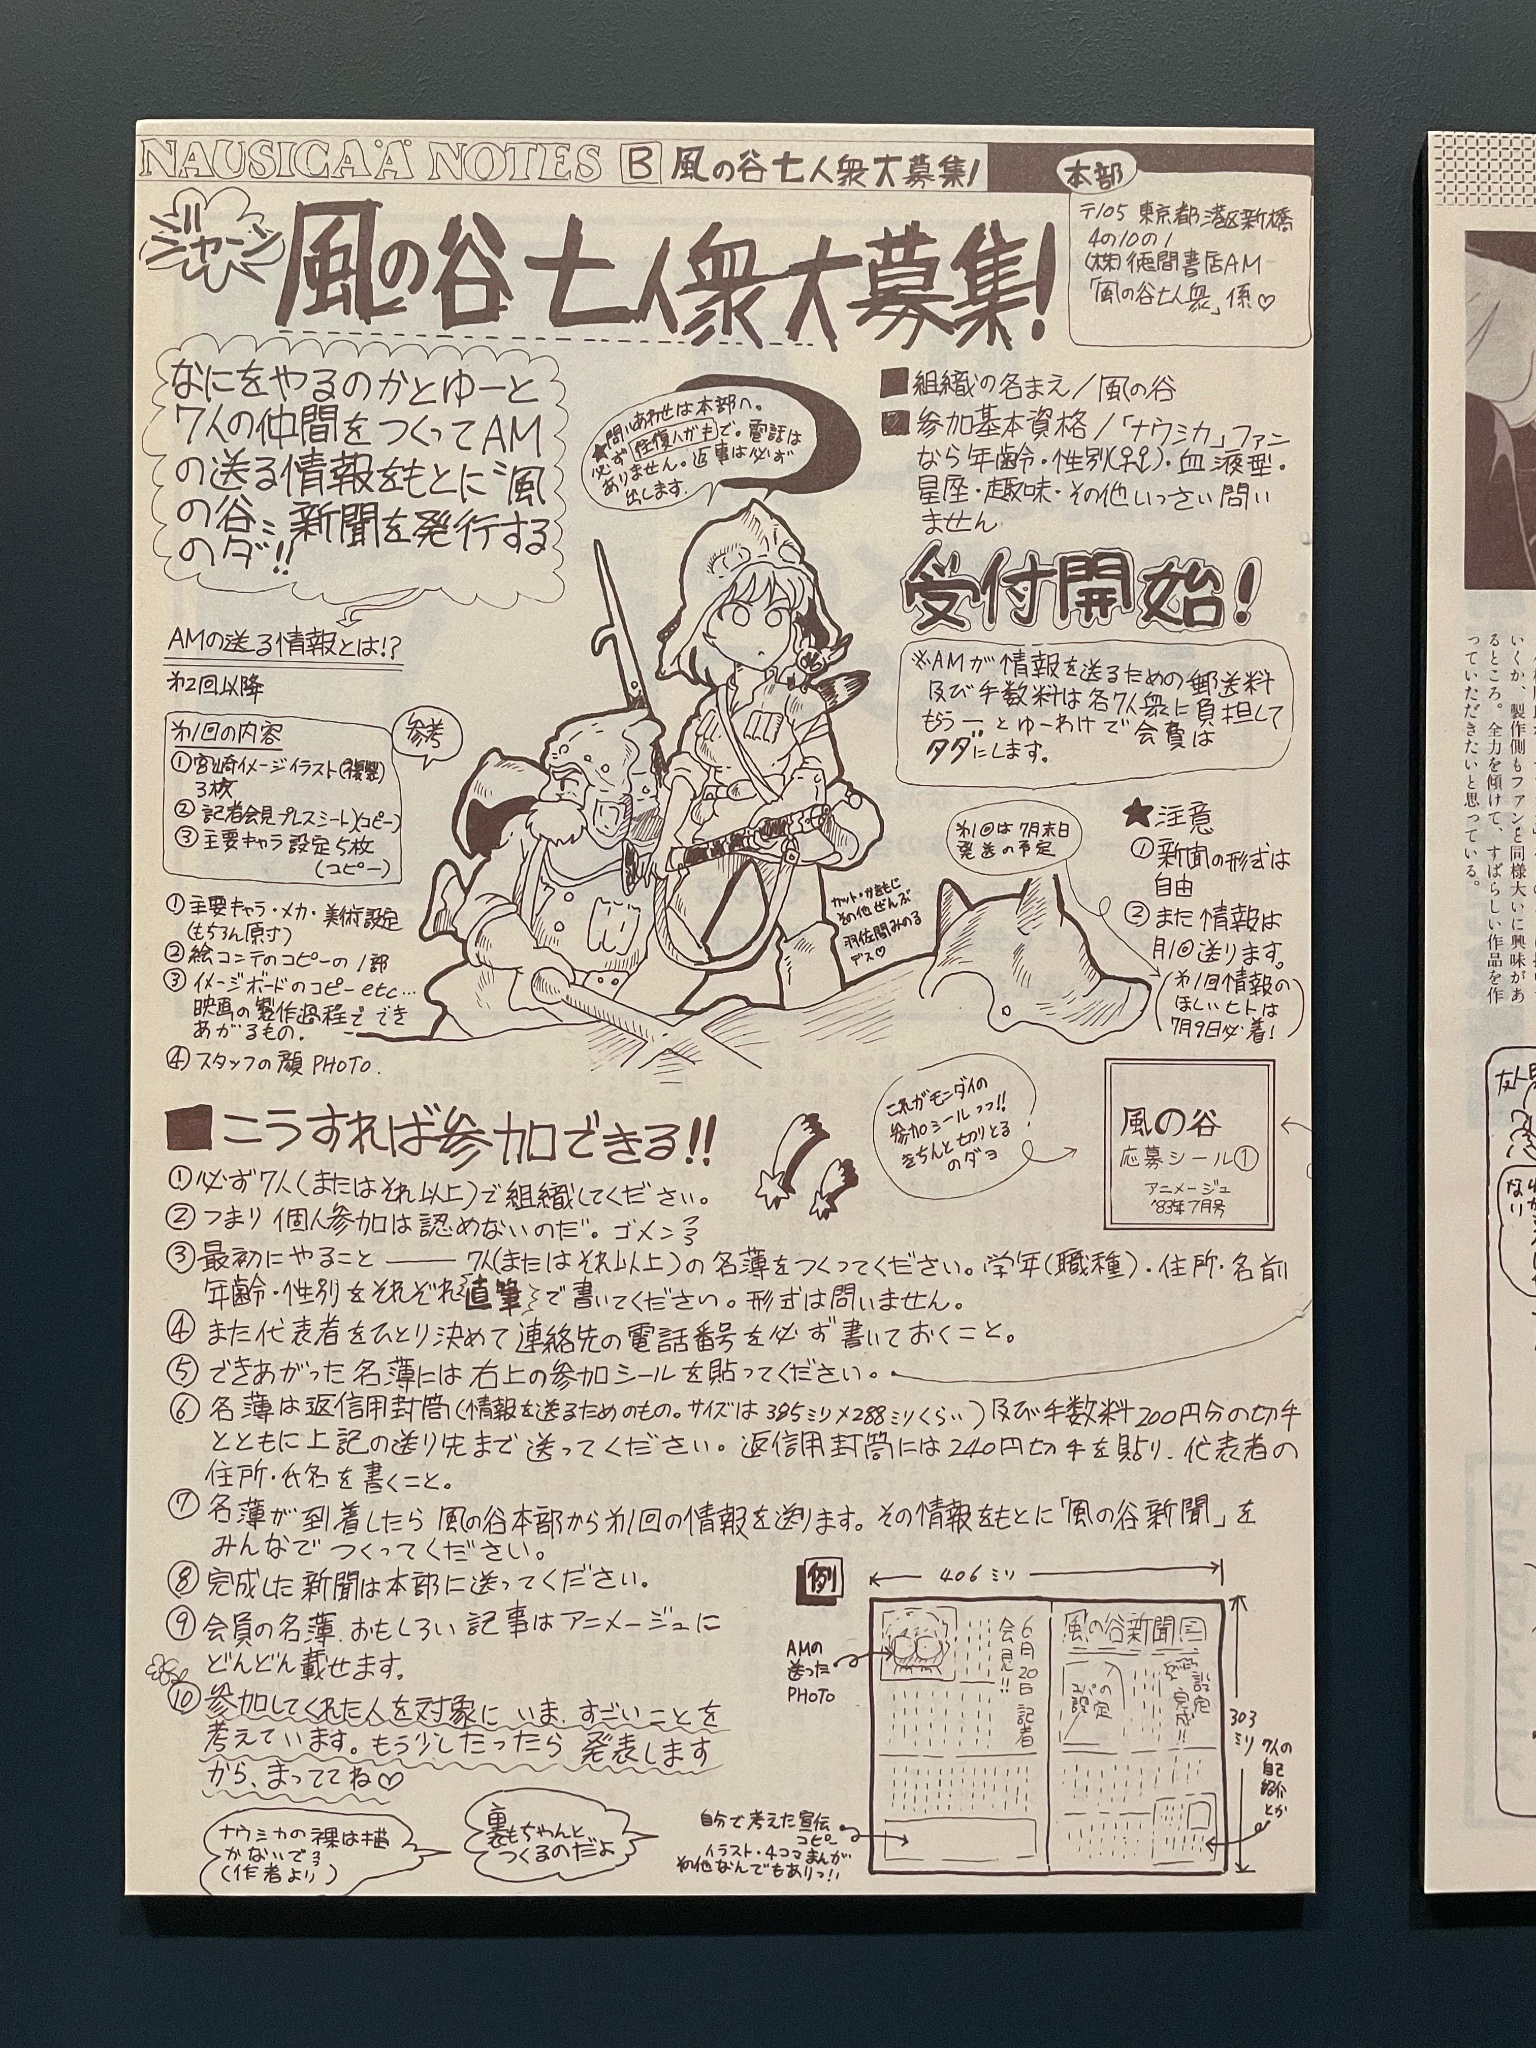 NAUSICAÄ NOTES B 風の谷七人衆大募集!
本部
〒105 東京都港区新橋
4の10の1
(株)徳間書店AM
「風の谷七人衆」係♡
ジャーン
風の谷七人衆大募集!
なにをやるのかとゆーと
7人の仲間をつくってAM
の送る情報をもとに〝風
の谷〟新聞を発行する
のダ!!
★問いあわせは本部へ。
必ず往復ハガキで。電話は
ありません。返事は必ず
出します。
■組織の名まえ/風の谷
■参加基本資格/「ナウシカ」ファン
なら年齢・性別(♀♂)・血液型・
星座・趣味・その他いっさい問い
ません
受付開始!
※AMが情報を送るための郵送料
及び手数料は各7人衆に負担して
もらう―とゆーわけで会費は
タダにします。
AMの送る情報とは!?
第2回以降
参考
第1回の内容
①宮崎イメージイラスト(複製)
3枚
②記者会見プレスシート(コピー)
③主要キャラ設定5枚
(コピー)
①主要キャラ・メカ・美術設定
(もちろん原寸)
②絵コンテのコピーの1部
③イメージボードのコピーetc…
映画の製作過程ででき
あがるもの。
④スタッフの顔PHOTO.
カット・かきもじ
その他ぜんぶ
羽佐間みのる
デス♡
第1回は7月末日
発送の予定
★注意
①新聞の形式は
自由
②また情報は
月1回送ります。
(第1回情報の
ほしいヒトは
7月9日必着!)
これがモンダイの
参加シールっっ!!
きちんと切りとる
のダヨ
風の谷
応募シール①
アニメージュ
'83年7月号
■こうすれば参加できる!!
①必ず7人(またはそれ以上)で組織してください。
②つまり個人参加は認めないのだ。ゴメンネ
③最初にやること――7人(またはそれ以上)の名簿をつくってください。学年(職種)・住所・名前
年齢・性別をそれぞれ直筆で書いてください。形式は問いません。
④また代表者をひとり決めて連絡先の電話番号を必ず書いておくこと。
⑤できあがった名簿には右上の参加シールを貼ってください。
⑥名簿は返信用封筒(情報を送るためのもの。サイズは385ミリ×288ミリくらい)及び手数料200円分の切手
とともに上記の送り先まで送ってください。返信用封筒には240円切手を貼り、代表者の
住所・氏名を書くこと。
⑦名簿が到着したら風の谷本部から第1回の情報を送ります。その情報をもとに「風の谷新聞」を
みんなでつくってください。
⑧完成した新聞は本部に送ってください。
⑨会員の名簿、おもしろい記事はアニメージュに
どんどん載せます。
⑩参加してくれた人を対象にいま、すごいことを
考えています。もう少したったら発表します
から、まっててね♡
ナウシカの裸は描
かないでネ
(作者より)
裏もちゃんと
つくるのだよ
例
406ミリ
303ミリ
AMの
送った
PHOTO
6月20日記者
会見!!
風の谷新聞
設定
完成!!
自分で考えた宣伝
コピー
イラスト・4コマまんが
その他なんでもありっ!!
7人の
自己
紹介
とか
いくか、製作側もファンと同様大いに興味があ
るところ。全力を傾けて、すばらしい作品を作
っていただきたいと思っている。